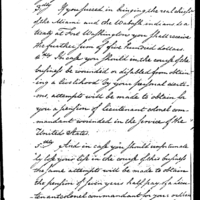 3rdly If you succeed in bringing the real chiefs
of the Miami and the Wabash indians to a
treaty at Fort Washington you shall receive
the further sum of five hundred dollars
4th In case you should in the course of the
business be wounded or disabled from obtain
ing a livelihood by your personal exertions
attempts will be made to obtain for
you a pension of lieutenant colonel com-
mandant wounded in the service of the
United States.
5thly And in case you should unfortunate
ly lose your life in the course of this business
the same attempts will be made to obtain
the pension of seven years half pay of a lieu-
tenant colonel commandant for your